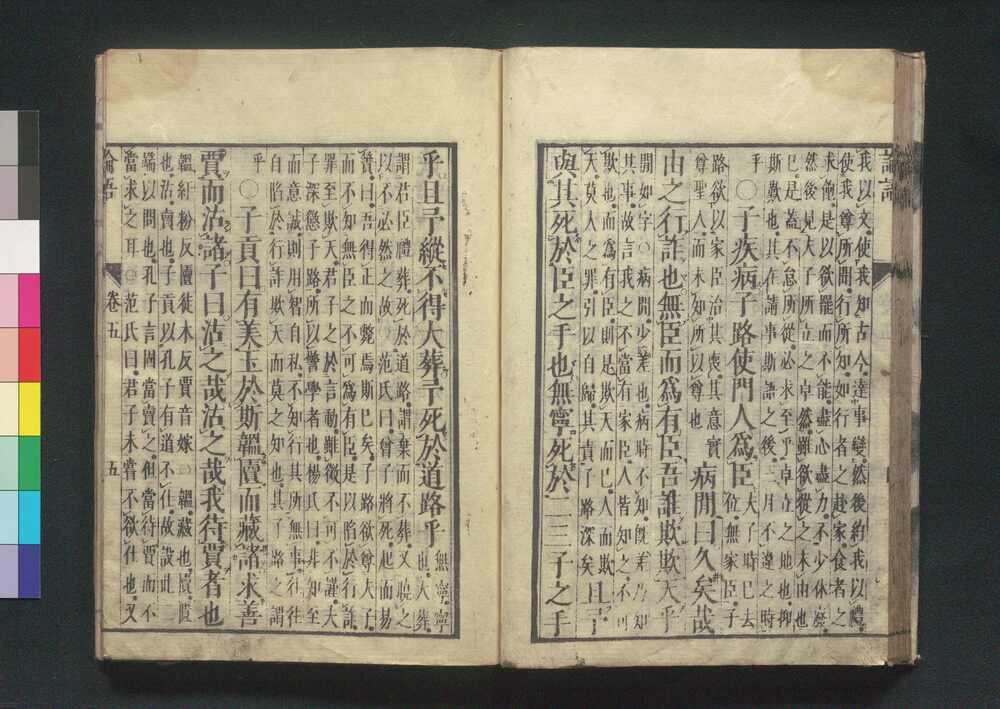 論語
我以文使我知古今達事變然後約我以禮
使我尊所聞行所知如行者之赴家食者之
求飽是以欲罷而不能盡心盡力不少休廢
然後見夫子所立之卓然雖欲從之末由也
已是蓋不怠所從必求至乎卓立之地也抑
斯歎也其在請事斯語之後三月不違之時
乎
○子疾病子路使門人爲臣
夫子時已去
位無家臣子
路欲以家臣治其喪其意實
尊聖人而未知所以尊也
病閒曰久矣哉
由之行詐也無臣而爲有臣吾誰欺欺天乎
閒如字○病閒少差也病時不知既差乃知
其事故言我之不當有家臣人皆知之不可
欺也而爲有臣則是欺天而已人而欺
天莫大之罪引以自歸其責子路深矣
且予
與其死於臣之手也無寧死於二三子之手
乎且予縱不得大葬予死於道路乎
無寧寧
也大葬
謂君臣禮葬死於道路謂棄而不葬又曉之
以不必然之故○范氏曰曾子將死起而易
簀曰吾得正而斃焉斯已矣子路欲尊夫子
而不知無臣之不可爲有臣是以陷於行詐
罪至欺天君子之於言動雖微不可不謹夫
子深懲子路所以警學者也楊氏曰非知至
而意誠則用智自私不知行其所無事往往
自陷於行詐欺天而莫之知也其子路之謂
乎
○子貢曰有美玉於斯韞匵而藏諸求善
賈而沽諸子曰沽之哉沽之哉我待賈者也
韞紆粉反匵徒木反賈音嫁○韞藏也匵匱
也沽賣也子貢以孔子有道不仕故設此
端以問也孔子言固當賣之但當待賈而不
當求之耳○范氏曰君子未嘗不欲仕也又
論語 卷五 五